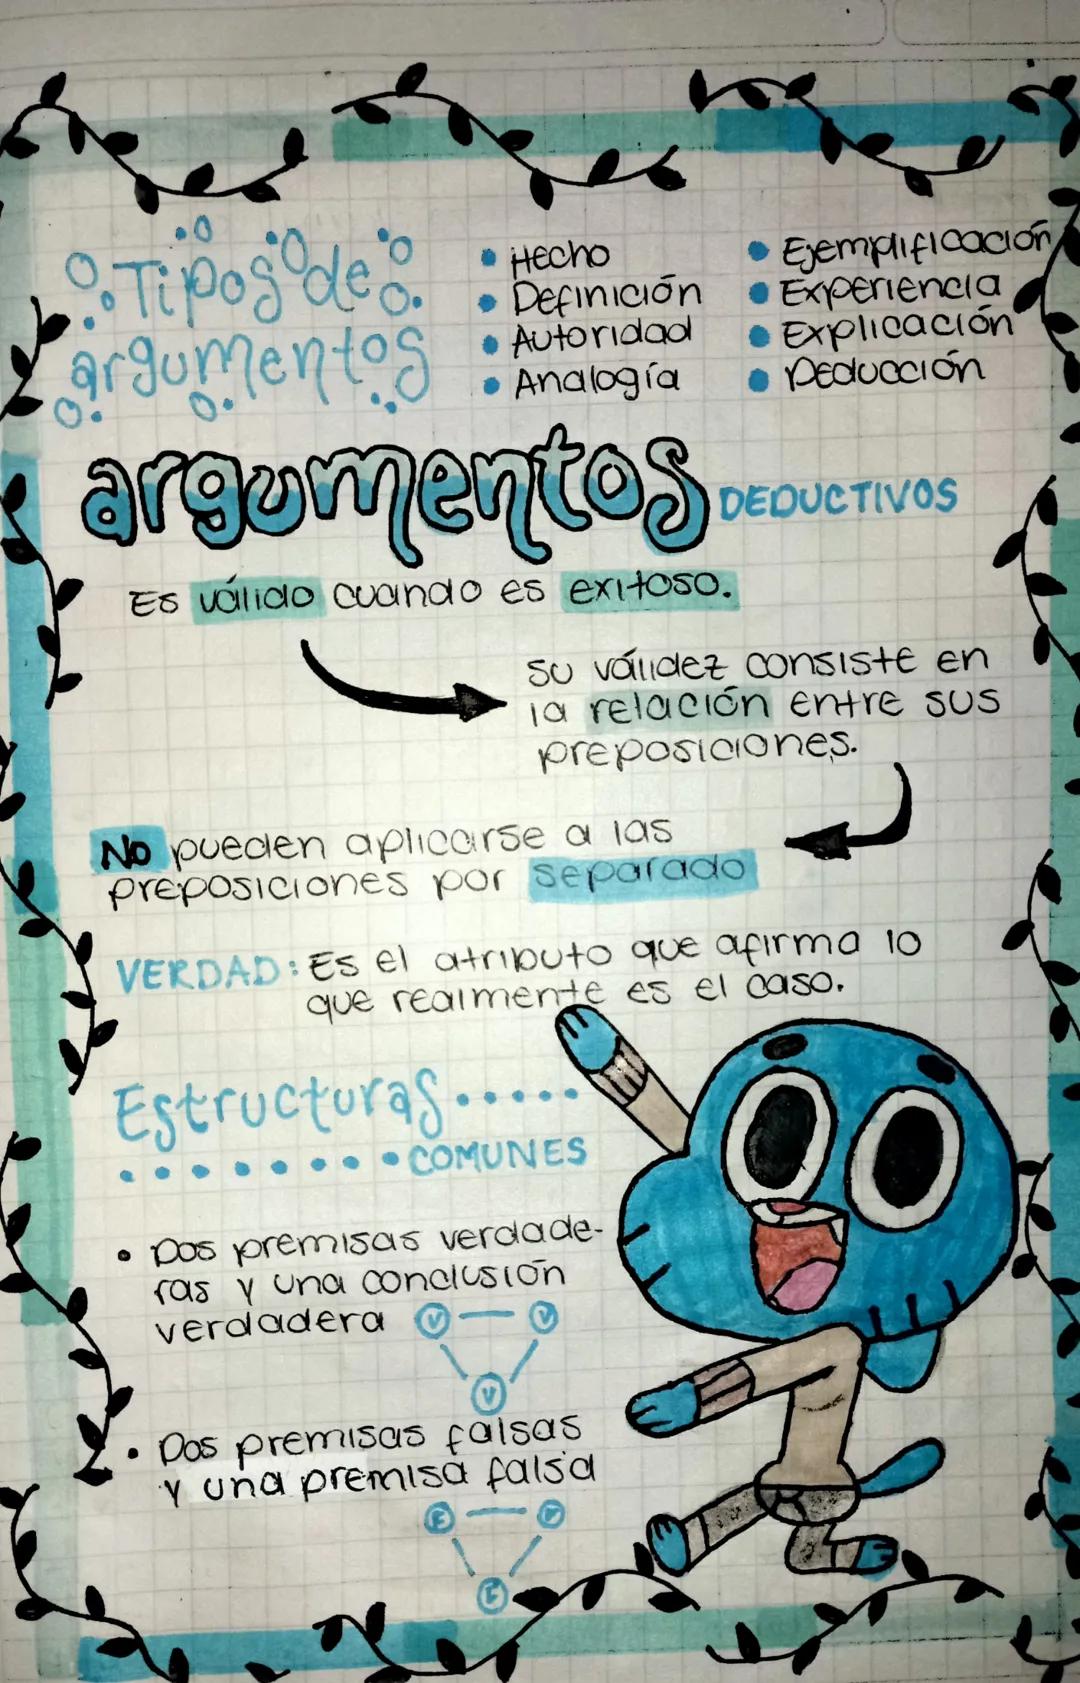 Tipos de
argumentos
• Hecho
• Definición
• Autoridad
• Analogía
• Ejemplificación
• Experiencia
• Explicación
• Deducción
argumentos DEDUCTIVOS
Es válido cuando es exitoso.
su válidez consiste en
la relación entre sus
preposiciones.
No pueden aplicarse a las
preposiciones por separado
VERDAD: Es el atributo que afirma lo
que realmente es el caso.
Estructuras
COMUNES
• Dos premisas verdade-
ras y una conclusión
verdadera
V V
V
• Dos premisas falsas
y una premisa falsa
F F
F